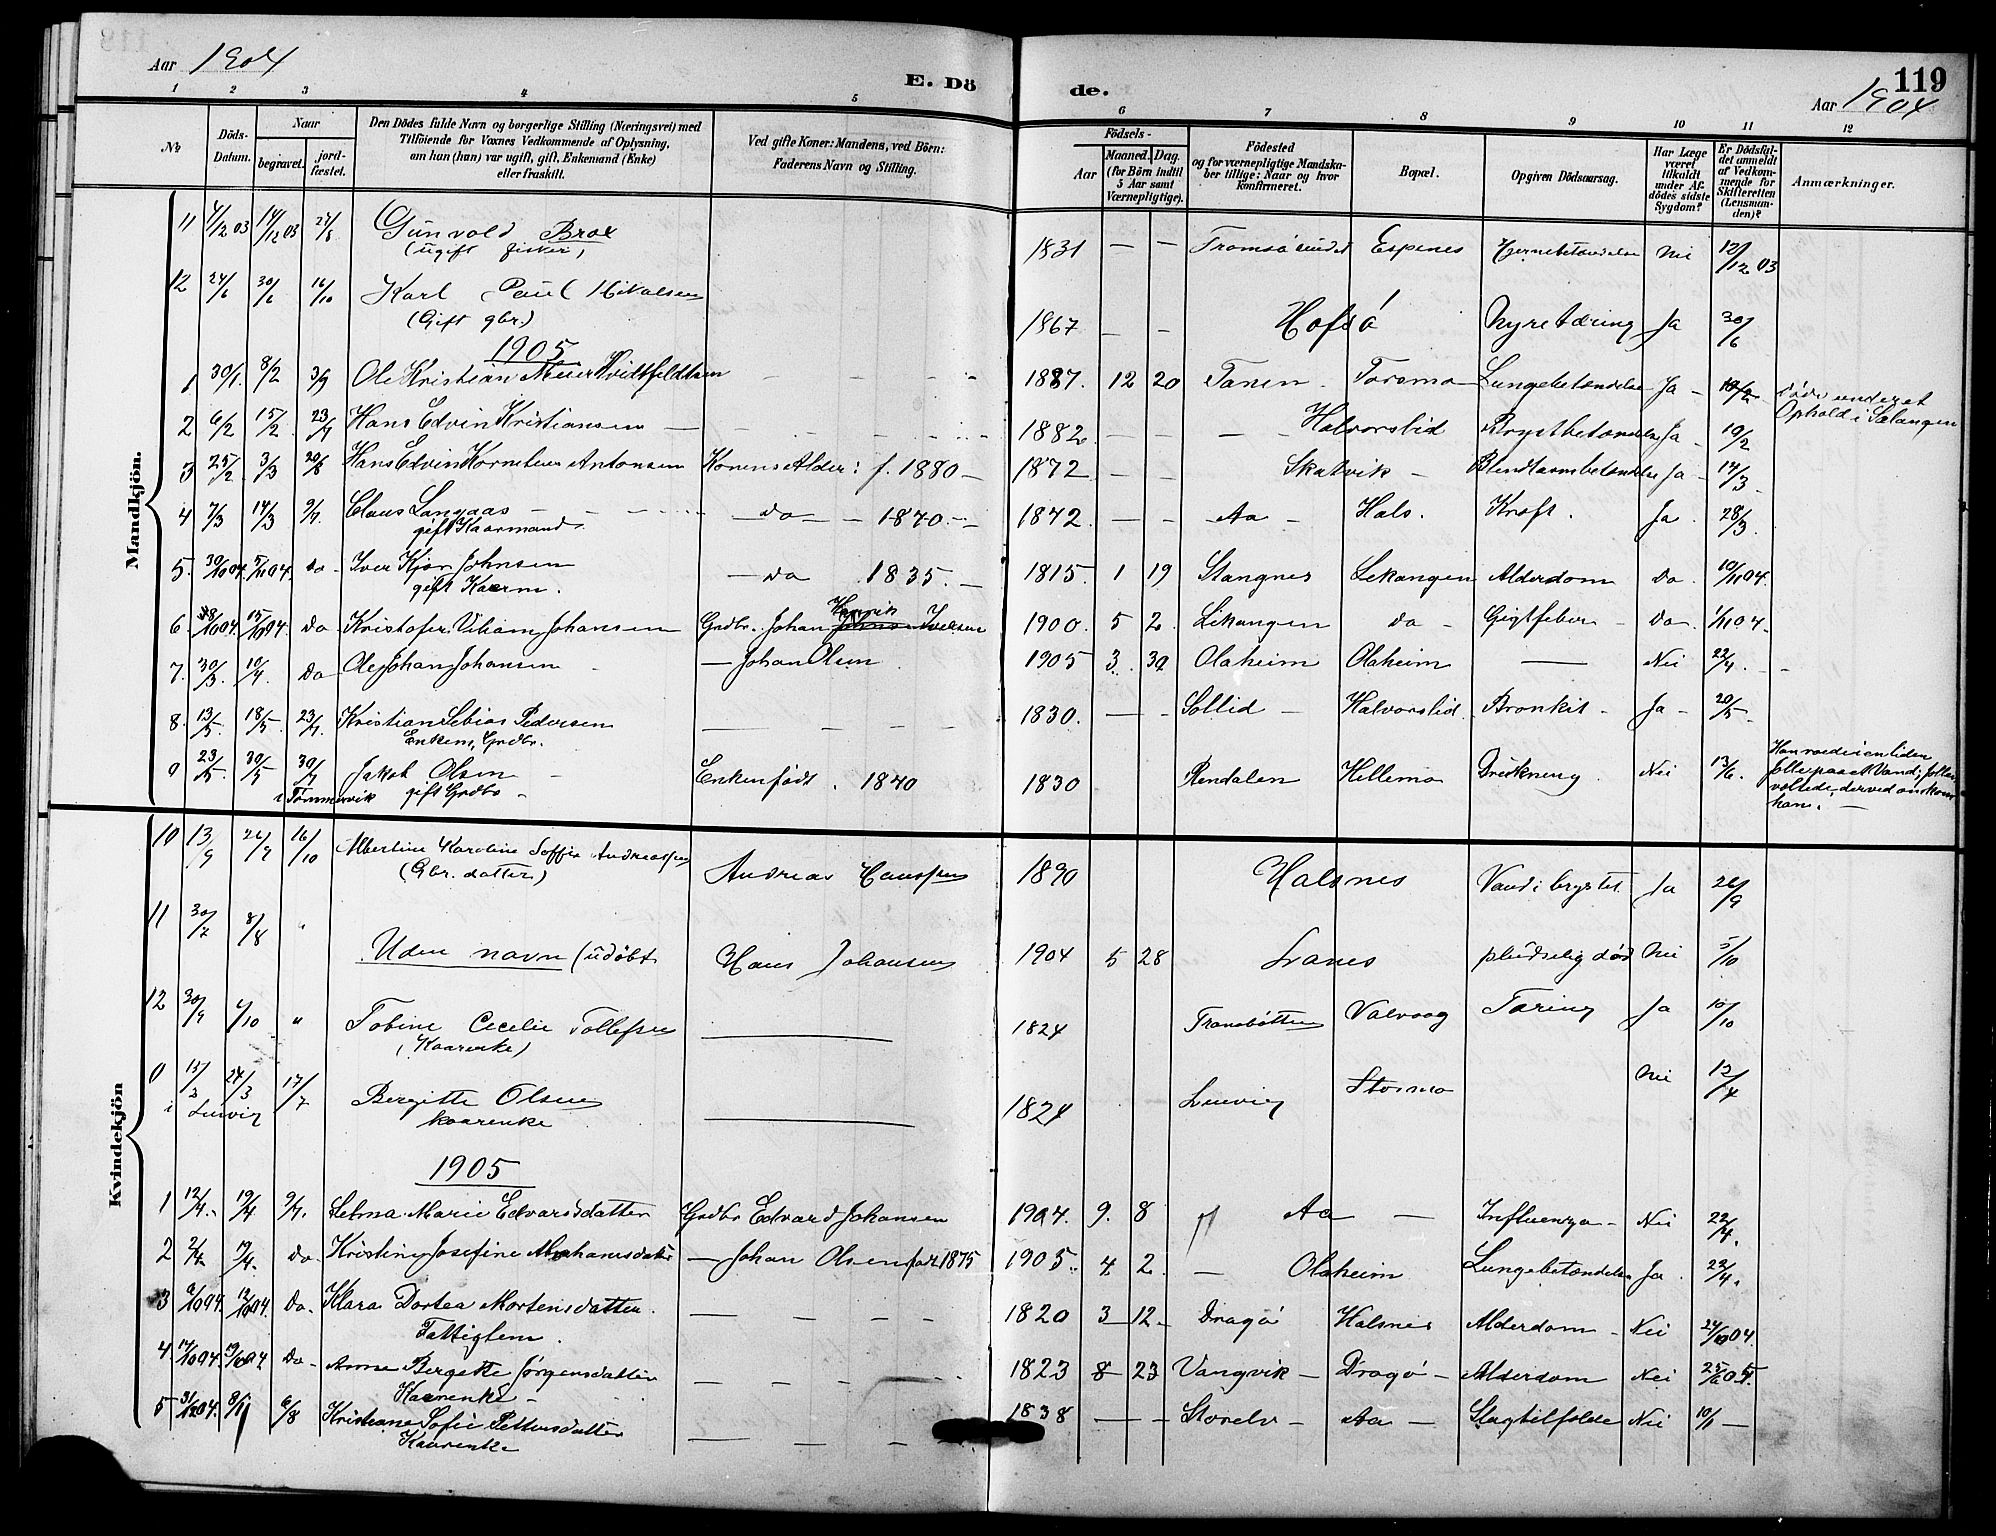 Aar 1904
E. Dö
de.
119
Aar 1904
1 2 3 4 5 6 7 8 9 10 11 12
No
Döds-
Datum.
Naar
begravet.
jord-
fæstet.
Den Dödes fulde Navn og borgerlige Stilling (Næringsvei) med
Tilföiende for Voxnes Vedkommende af Oplysning,
om han (hun) var ugift, gift, Enkemand (Enke)
eller fraskilt.
Ved gifte Koner: Mandens, ved Börn:
Faderens Navn og Stilling.
Födsels-
Aar
Maaned. Dag.
(for Börn indtil
5 Aar samt
Værnepligtige).
Födested
og for værnepligtige Mandska-
ber tillige: Naar og hvor
konfirmeret.
Bopæl.
Opgiven Dödsaarsag.
Har Læge
været
tilkaldt
under Af-
dödes sidste
Sygdom?
Er Dödsfal-
det anmeldt
af Vedkom-
mende for
Skifteretten
(Lensman-
den)?
Anmærkninger.
Mandkjön.
11 4/12 03 14/12 03 27/8 Gunvold Brox 1831 — — Tromsøsundet Espenes Hjernebetændelse Nei 12/12 03
(ugift fisker)
12 24/6 30/6 16/10 Karl Paul Nikolaisen 1867 — — Hofsö Nyretæring Ja 30/6
(Gift gbr.)
1905
1 30/1. 8/2 3/9 Ole Kristian Meier Hvidtfeldtsen — — — 1887. 12 20 Tanen. Toresmo Lungebetændelse Ja -
Döde under et
Ophold i Salangen
2 6/2 15/2. 23/7 Hans Edvin Kristiansen — 1882. — — Halvorslid Brystbetændelse Ja - 19/2
3 25/2 3/3 20/8 Hans Edvin Kornelius Antonsen Konens Alder: f. 1880 — 1872 — — Skatvik — Blindtarmbetændelse Ja - 14/3
4 7/3 14/3 9/7. Claus Langaas — Do — — 1840. 1842. — — Aa — Hals. Kræft. Ja. 28/3
gift Kaarmand
5. 30/10 04. 5/11 04. Do Iver Kjør Johnsen — Do 1835. — 1815. 1 19 Stangnes Lekangen Alderdom Do. 10/11 04.
gift Kaarm.
6 8/10 04. 15/10 04. Do Kristofer Viliam Johansen Grdbr. Johan Henrik Iversen 1900. 5 2. Lekangen Do — Gigtfeber — Do. 1/11 04.
7. 30/3 10/4. Do Ole Johan Johansen — Johan Olsen 1905 3. 30 Olaheim Olaheim — Nei 22/4.
8. 13/5. 18/5. 23/7. Kristian Sebias Pedersen — — — 1830. — — Sollid — Halvorslid. Bronkit — Ja — 20/5
Enkem, Grdbr.
9 23/5. 30/5 30/7 Jakob Olsen Enken født. 1840 1830 Rendalen Hellemo Drukning. Nei 13/6.
i Tömmervik gift Grdbr.
Han roede i en liden
Jolle paa et Vand; Jollen
væltede, derved omkom
han. —
Kvindekjön
10 13/9 26/9 16/10 Albertine Karoline Soffie Andreassen Andreas Hanssen 1890 Halsnes Vand i brystet. Ja 26/9
(Gbr. datter)
11 30/7 8/8 " Uden navn (udöbt Hans Johansen 1904 5 28 Lanes pludselig död Nei 5/10
12 30/9 4/10 " Tobine Cecelie Tollefsen — 1824 Tranebötten Valvaag Tæring Ja 10/10
(Kaarenke)
0 15/3 24/3 17/7 Bergitte Olsen — 1824 Lenvig Stormo Nei 12/4
i Lenvig kaarenke
1905
1 12/4. 19/4 9/7. Selma Marie Edvardsdatter Grdbr Edvard Johansen 1904. 9. 8 Aa — Influenza — Nei 22/4.
2 2/4. 19/4. Do Kristine Josefine Johansdatter — Johan Olsen født 1875 1905. 4 2. — Olaheim Lungebetændelse Ja. 22/4.
3 9/10 04. 12/10 04. Do. Klara Dortea Mortensdatter. — — — 1820 3 12. Dragö Halsnes Alderdom — Nei 24/10 04.
Fattiglem.
4 14/10 04. 19/10 04 Do. Anne Bergette Jørgensdatter — — — 1823 8 23 Vangvik — Dragö — Alderdom Nei
Kaarenke —
5 31/12 04. 8/1 6/8 Kristiane Sofie Pettersdatter — — — 1838 — — Storelv — Aa — Slagtilfælde Nei 10/1 —
Kaarenke